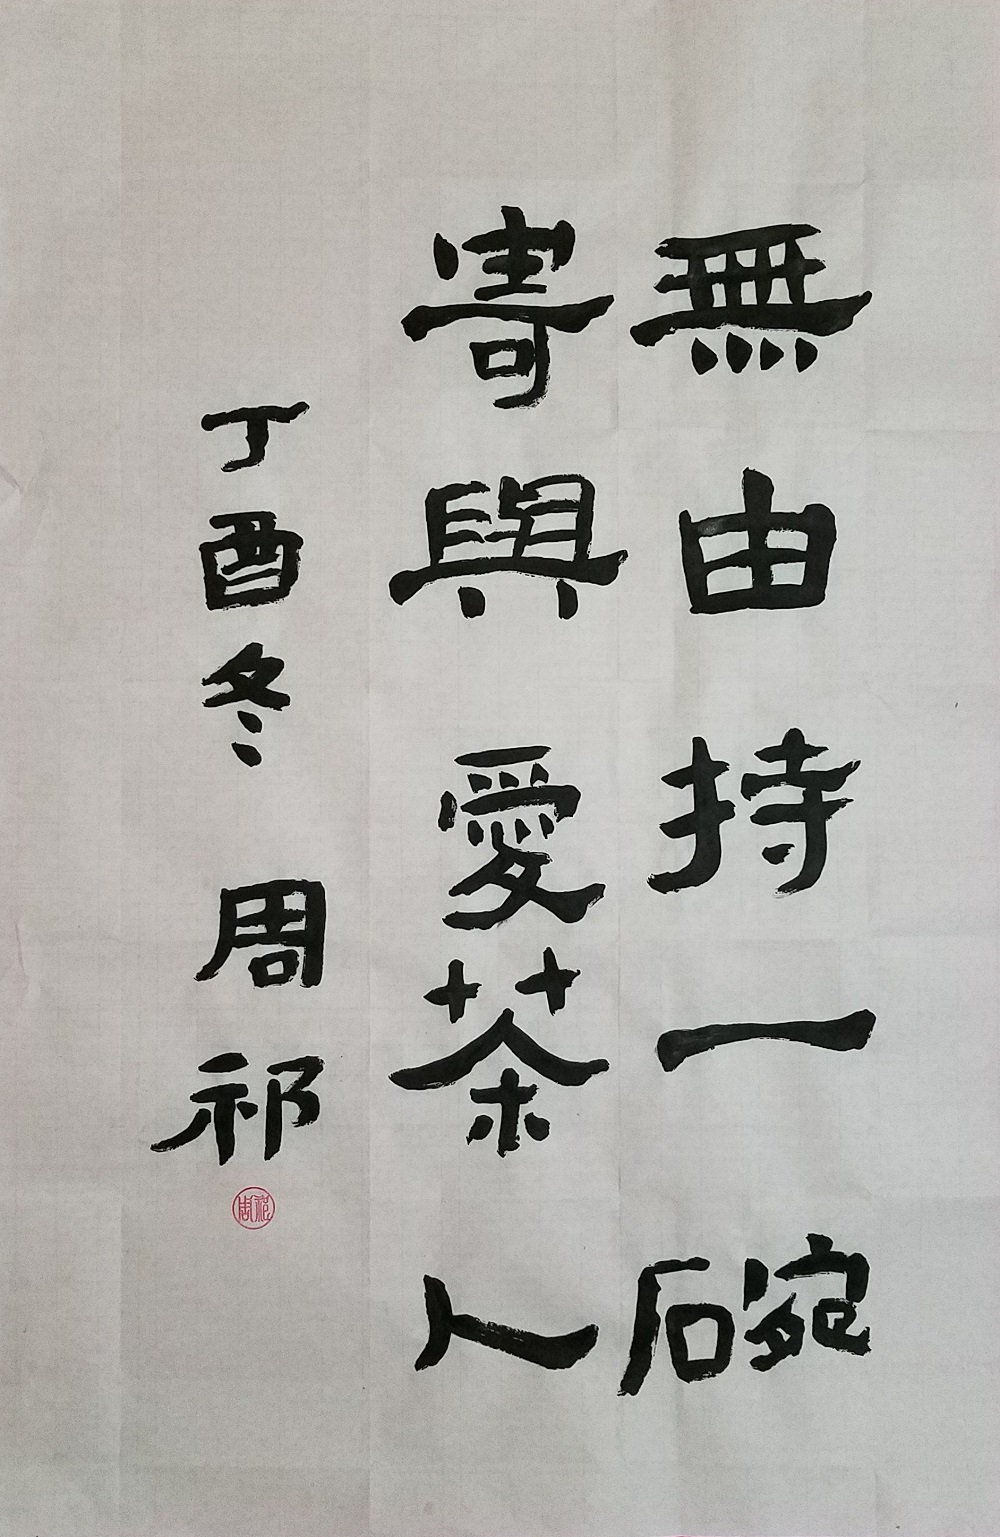 無由持一碗
寄與愛茶人
丁酉冬 周祁
周祁